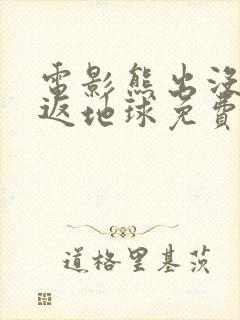 電影熊出沒
返地球免費
道格里基茨